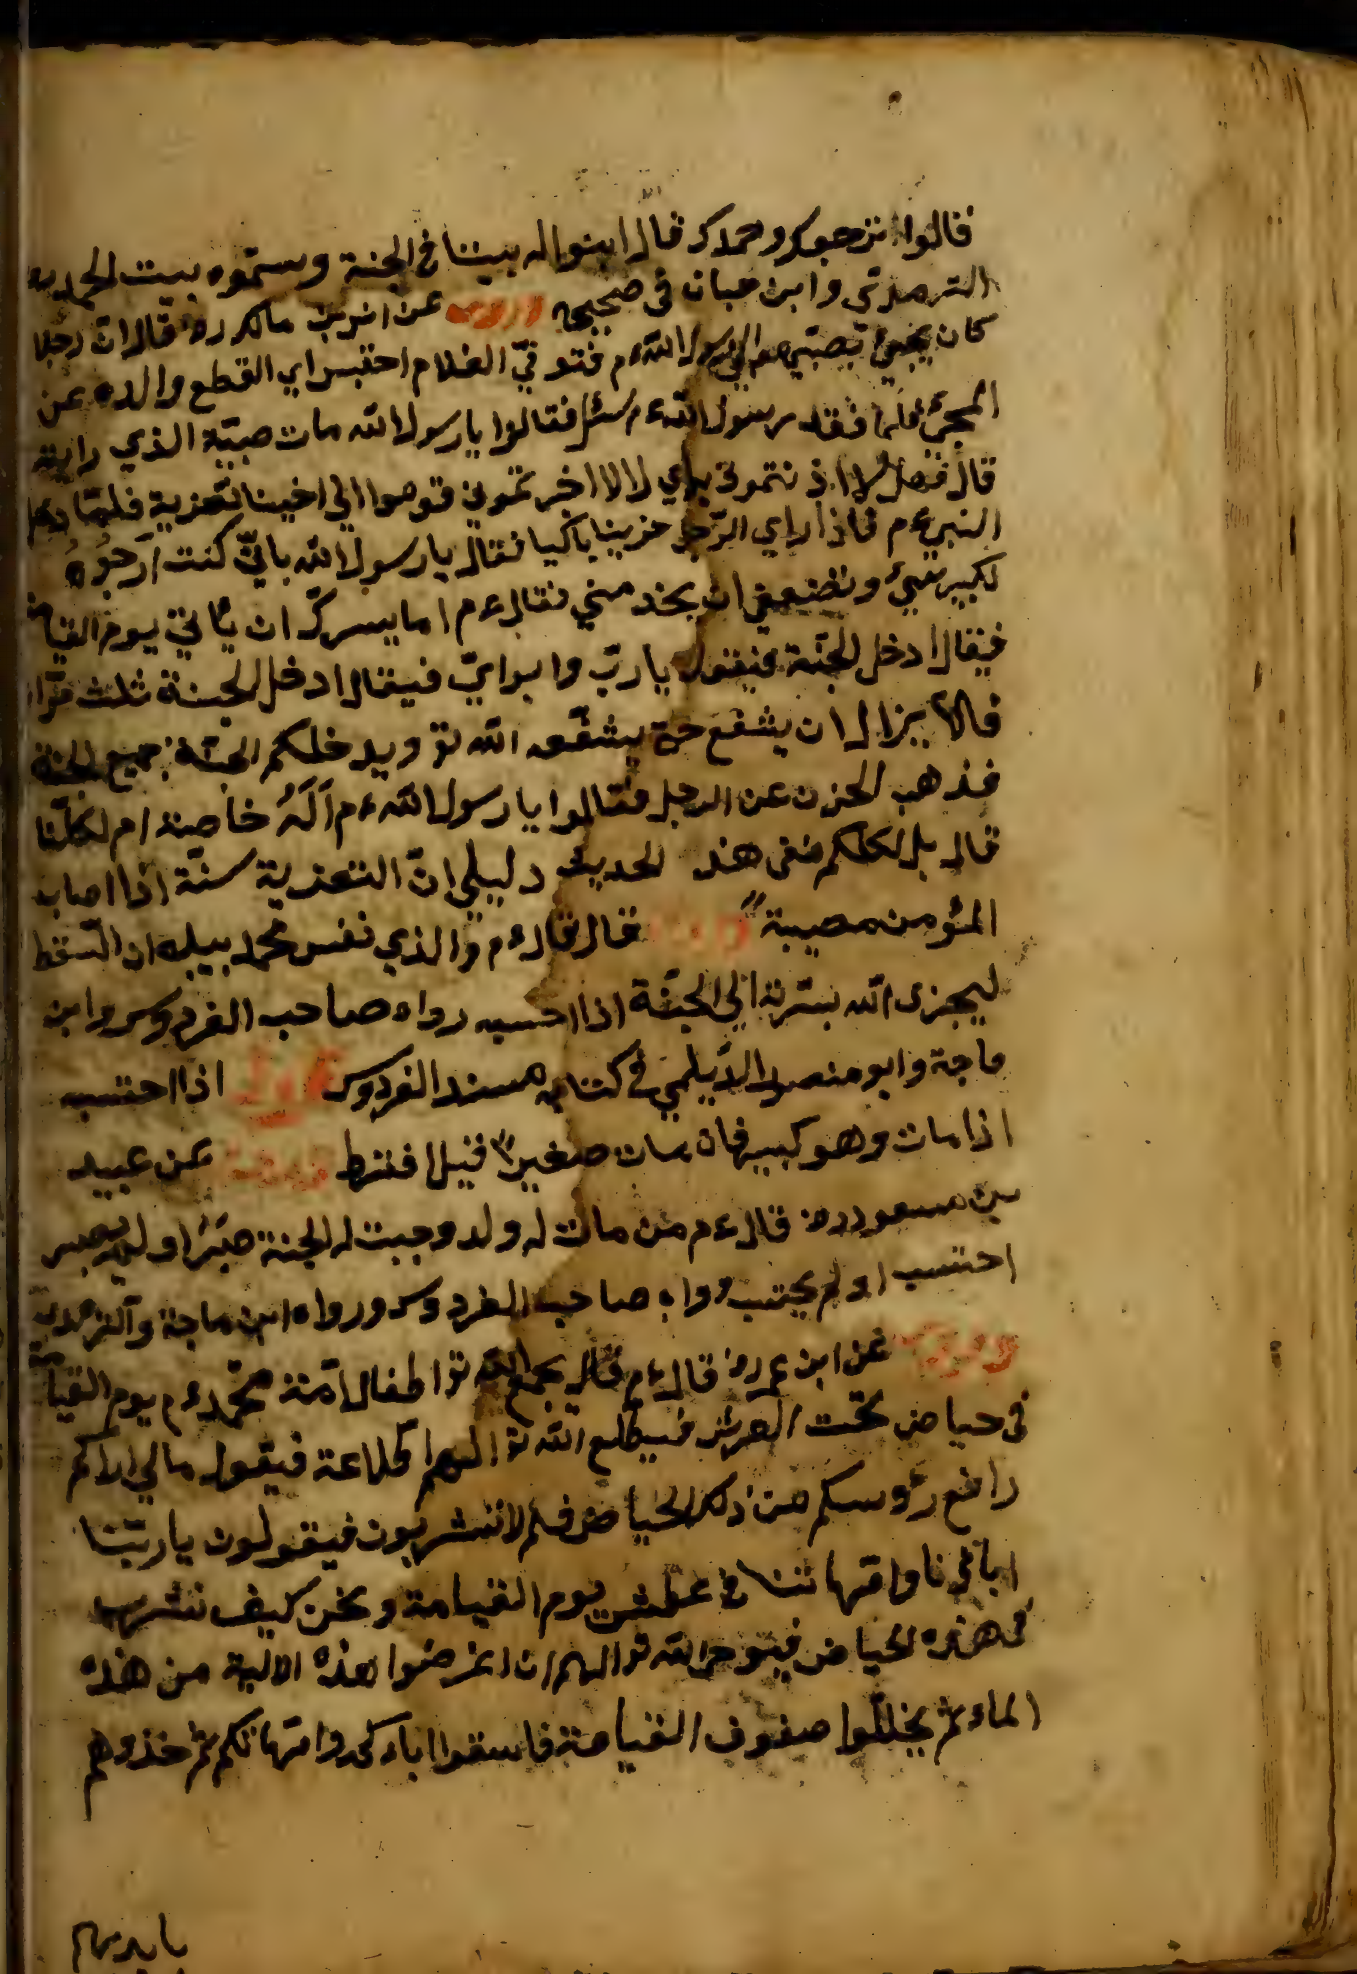 فقالوا استرجعوك وحمدك قال ابنوا له بيتا في الجنة وسمّوه بيت الحمد
الترمذي وابن حبان في صحيحه عن انس بن مالك رض قال ان رجلا
كان يجيئ بصبي الى رسول الله م فتوفي الغلام احتبس اي القطع والده عن
المجئ فلما فقد رسول الله م سئل فقالوا يا رسول الله مات صبيّه الذي رايته
قال لا اخر قوموا الى اخينا لتعزية فلما دخل
النبي م فاذا الرجل حزينا باكيا فقال يا رسول الله باني كنت ارجوه
لكبر سني وضعفي ان يخدمني فقال ع م اما يسرك ان يأتي يوم القيامة
فيقال ادخل الجنة فيقول يا رب وابواي فيقال ادخل الجنة ثلث مرّات
فلا يزال ان يشفع حتى يشفّعه الله تع ويدخلكم الجنة جميع الجنة
فذهب الحزن عن الرجل فقالوا يا رسول الله ع م اله خاصة ام لكلّنا
قال بل لكلكم ففي هذ الحديث دليل ان التعزية سنّة اذا اصاب
المؤمن مصيبة قال قال ع م والذي نفس محمد بيده ان السّقط
ليجزى الله الى الجنّة اذا احتسبه رواه صاحب الفردوس وابن
ماجة وابو منصور الديلمي في كتابه مسند الفردوس قوله اذا احتسبه
اذا مات وهو كبير فان مات صغيرا قيل افترط عن عبيد
بن مسعود رض قال ع م من مات له ولد وجبت له الجنة صبر او لم يصبر
احتسب او لم يحتسب رواه صاحب الفردوس ورواه ابن ماجة والترمذي
عن ابن عمر رض قال ع م قال يجمع الله تع اطفال امّة محمّد ع م يوم القيامة
في حياض تحت العرش فيطلع الله تع اليهم اطلاعة فيقول مالي اراكم
رافع رؤسكم من ذلك الحياض فلم لا تشربون فيقولون يا ربّنا
ابائنا وامّهاتنا في عطش يوم القيامة ونحن كيف نشرب
في هذه الحياض فيوحى الله تع اليهم ان اغرضوا بهذه الانية من هذه
الماء ثم يخللوا صفوف القيامة فاسقوا اباءكم وامّهاتكم ثم خذوهم
بايديهم